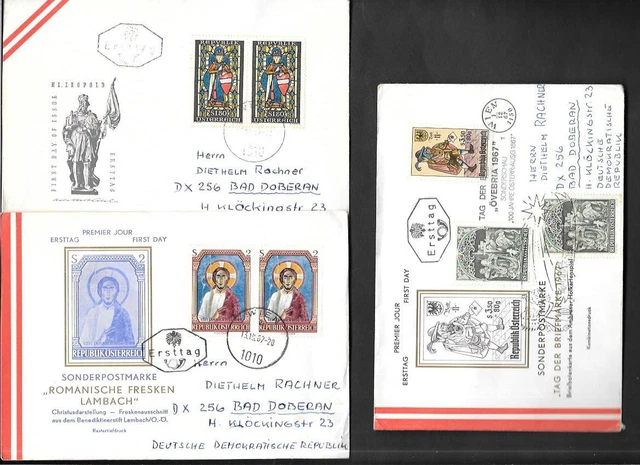 Ersttag
HL. LEOPOLD
FIRST DAY OF ISSUE
ERSTTAG
REPUBLIK REPUBLIK
S1.80 S1.80
ÖSTERREICH ÖSTERREICH
1010
Herrn
DIETHELM RACHNER
DX 256 BAD DOBERAN
H. KLÖCKINGSTR 23
PREMIER JOUR
ERSTTAG FIRST DAY
S 2
REPUBLIK ÖSTERREICH
S 2 S 2
REPUBLIK ÖSTERREICH REPUBLIK ÖSTERREICH
Ersttag
1010
SONDERPOSTMARKE
„ROMANISCHE FRESKEN
LAMBACH"
Christusdarstellung – Freskenausschnitt
aus dem Benediktinerstift Lambach/O.-Ö.
Rastertiefdruck
Herrn
DIETHELM RACHNER
DX 256 BAD DOBERAN
H. KLÖCKINGSTR 23
DEUTSCHE DEMOKRATISCHE REPUBLIK
WIEN
1150
TAG DER
"ÖVEBRIA 1967"
SONDERSCHAU
Republik Österreich
HERRN
DIETHELM RACHNER
DX 256
BAD DOBERAN
H. KLÖCKINGSTR 23
DEUTSCHE
DEMOKRATISCHE
REPUBLIK
Ersttag
PREMIER JOUR
ERSTTAG FIRST DAY
S 3.50
+ 80g
Republik Österreich
SONDERPOSTMARKE
„TAG DER BRIEFMARKE 1967"
Kombinationsdruck